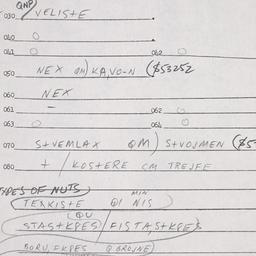 QNP
030 VELISTE
040 O
041 O 042 O
050 NEX QM) KA,VO-N ($53252
060 NEX
061 — 062 O
063 O 064 O
070 S+VEMLAX QM) S+VOJMEN ($5
080 + / KOSTERE CM TREJFE
TYPES OF NUTS
MIN
TEXKISTE QI NIS
QU
STAS+KPES / FISTA,S+KPES
BORU,FKPES Q BROJNE)